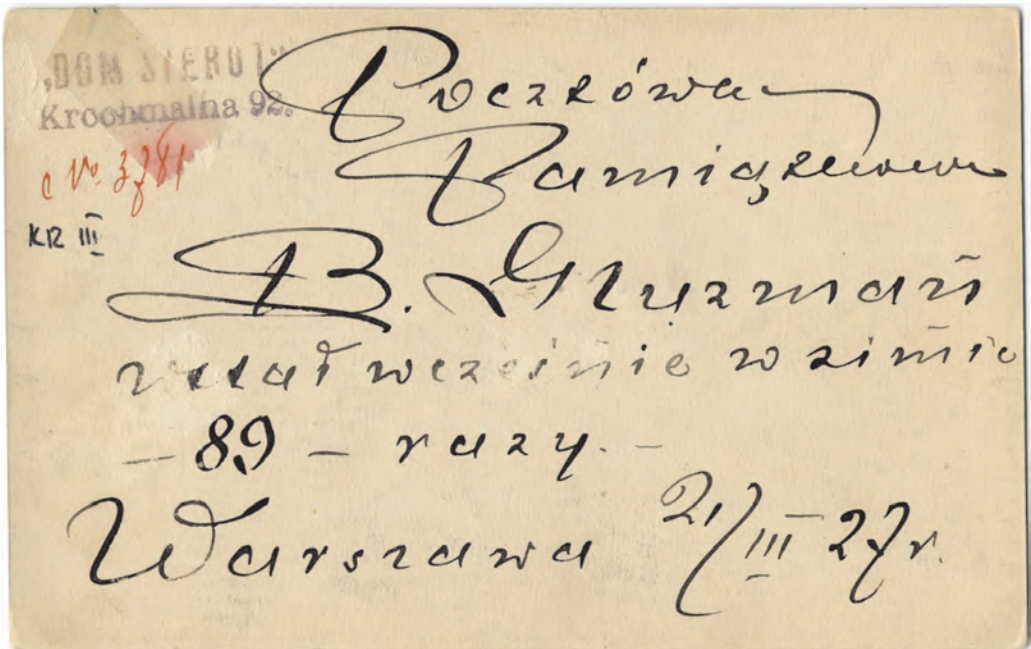 „DOM SIEROT”
Krochmalna 92.
c No. 3781
KR III
Pocztówka
Pamiątkowa
B. Gluzman
wstał wcześnie w zimie
– 89 – razy. –
Warszawa 21/III 27 r.